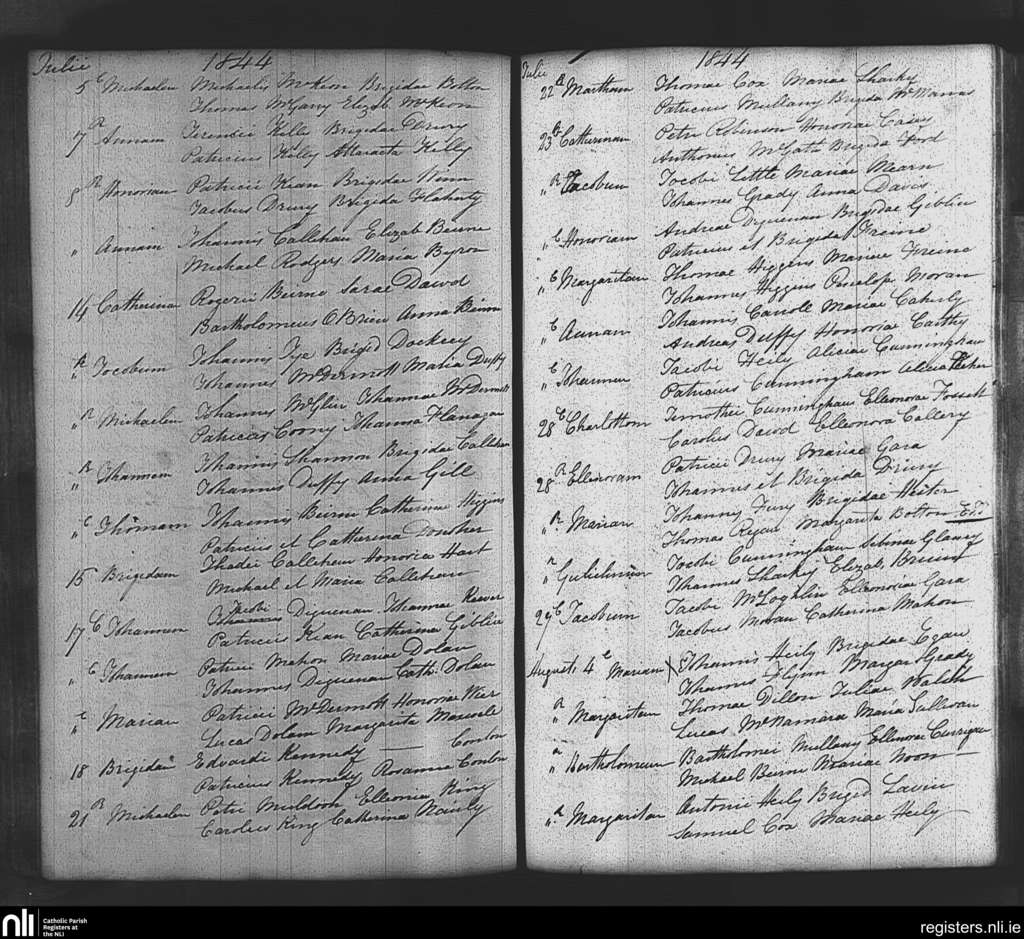 Julii 1844
5 C Michaelem Michaelis McKeon Brigidae Bolton
Thomas McGarry Elizab McKeon
7 R Annam Terencii Kelly Brigidae Drury
Patricius Kelly Attaracta Kelly
8 R Honoriam Patricii Kean Brigidae Winn
Jacobus Drury Brigida Flaherty
" Annam Johannis Callehan Elizab Beirne
Michael Rodgers Maria Byron
14 Catherinam Rogerii Beirne Sarae Dawd
Bartholomeus O'Brien Anna Beirne
" R Jacobum Johannis Tye Brigid Dockery
Johannes McDermott Maria Duffy
" R Michaelem Johannis McGlin Johannae McDermott
Patricius Coony Johanna Flanagan
" R Johannem Johannis Shannon Brigidae Callehan
Johannes Duffy Anna Gill
" C Thomam Johannis Beirne Catherine Higgins
Patricius et Catherina Donoher
15 Brigidam Thadei Callehan Honoriae Hart
Michael et Maria Callehan
17 C Johannem Jacobi Deguenan Johannae Keever
Patricius Kean Catherina Giblin
" C Johannem Patricii Mahon Mariae Dolan
Johannes Deguenan Cath: Dolan
" C Mariam Patricii McDermott Honoriae Wier
Lucas Dolan Margarita
18 Brigidam Edvardi Kennedy — Conlon
Patricius Kennedy Rosanna Conlon
21 R Michaelem Petri Muldoon Elleonia King
Carolus King Catherina
Julii 1844
22 R Martham Thomae Cox Mariae Sharky
Patricius Mullany Brigida McManus
23 C Catherinam Petri Robinson Honoriae Casey
Anthonius McGath Brigida Ford
" R Jacobum Jacobi Little Mariae Mearn
Johannes Grady Anna Davis
" C Honoriam Andreae Deguenan Brigidae Giblin
Patricius et Brigida Freine
" C Margaritam Thomae Higgins Mariae Freine
Johannes Higgins Penelop Moran
" C Annam Johannis Carroll Mariae Caherly
Andreas Duffy Honoria Carthy
" C Johannem Jacobi Heily Aliciae Cunningham
Patricius Cunningham Alicia
28 C Charlottam Timothei Cunningham Elleonorae Fossett
Carolus Dawd Elleonora Callery
28 R Ellenoram Patricii Drury Mariae Gara
Johannes et Brigida Drury
" R Mariam Johannis Fury Brigidae Hester
Thomas Regan Margarita Bolton
" R Gulielmum Jacobi Cunningham Sabinae Glancy
Johannes Sharky Elizab Breine
29 C Jacobum Jacobi McLoghlin Elleonorae Gara
Jacobus Moran Catherina Mahon
Augusti 4 C Mariam Johannis Heily Brigidae Egan
Johannes Flynn Margar: Grady
" R Margaritam Thomae Dillon Juliae Walsh
Lucas McNamara Maria Sullivan
" R Bartholomeum Bartholomei Mullany Ellenorae Currigan
Michael Beirne Mariae Noon
" R Margaritam Antonii Heily Brigid Lavin
Samuel Cox Mariae Heily
nli Catholic Parish
Registers at
the NLI
registers.nli.ie